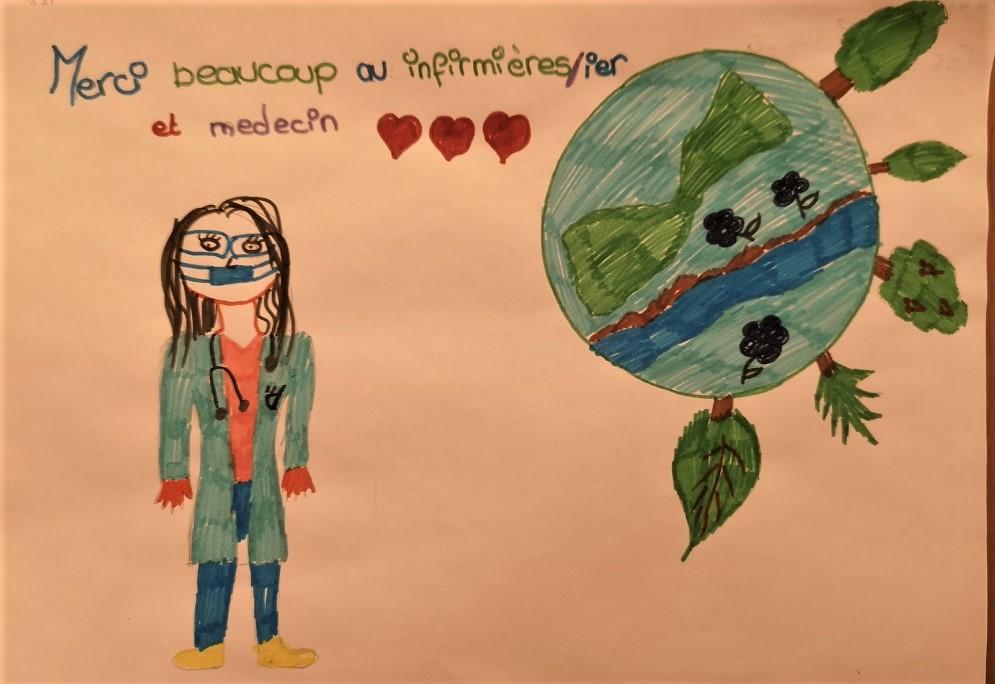 Merci beaucoup au infirmières/ier
et medecin